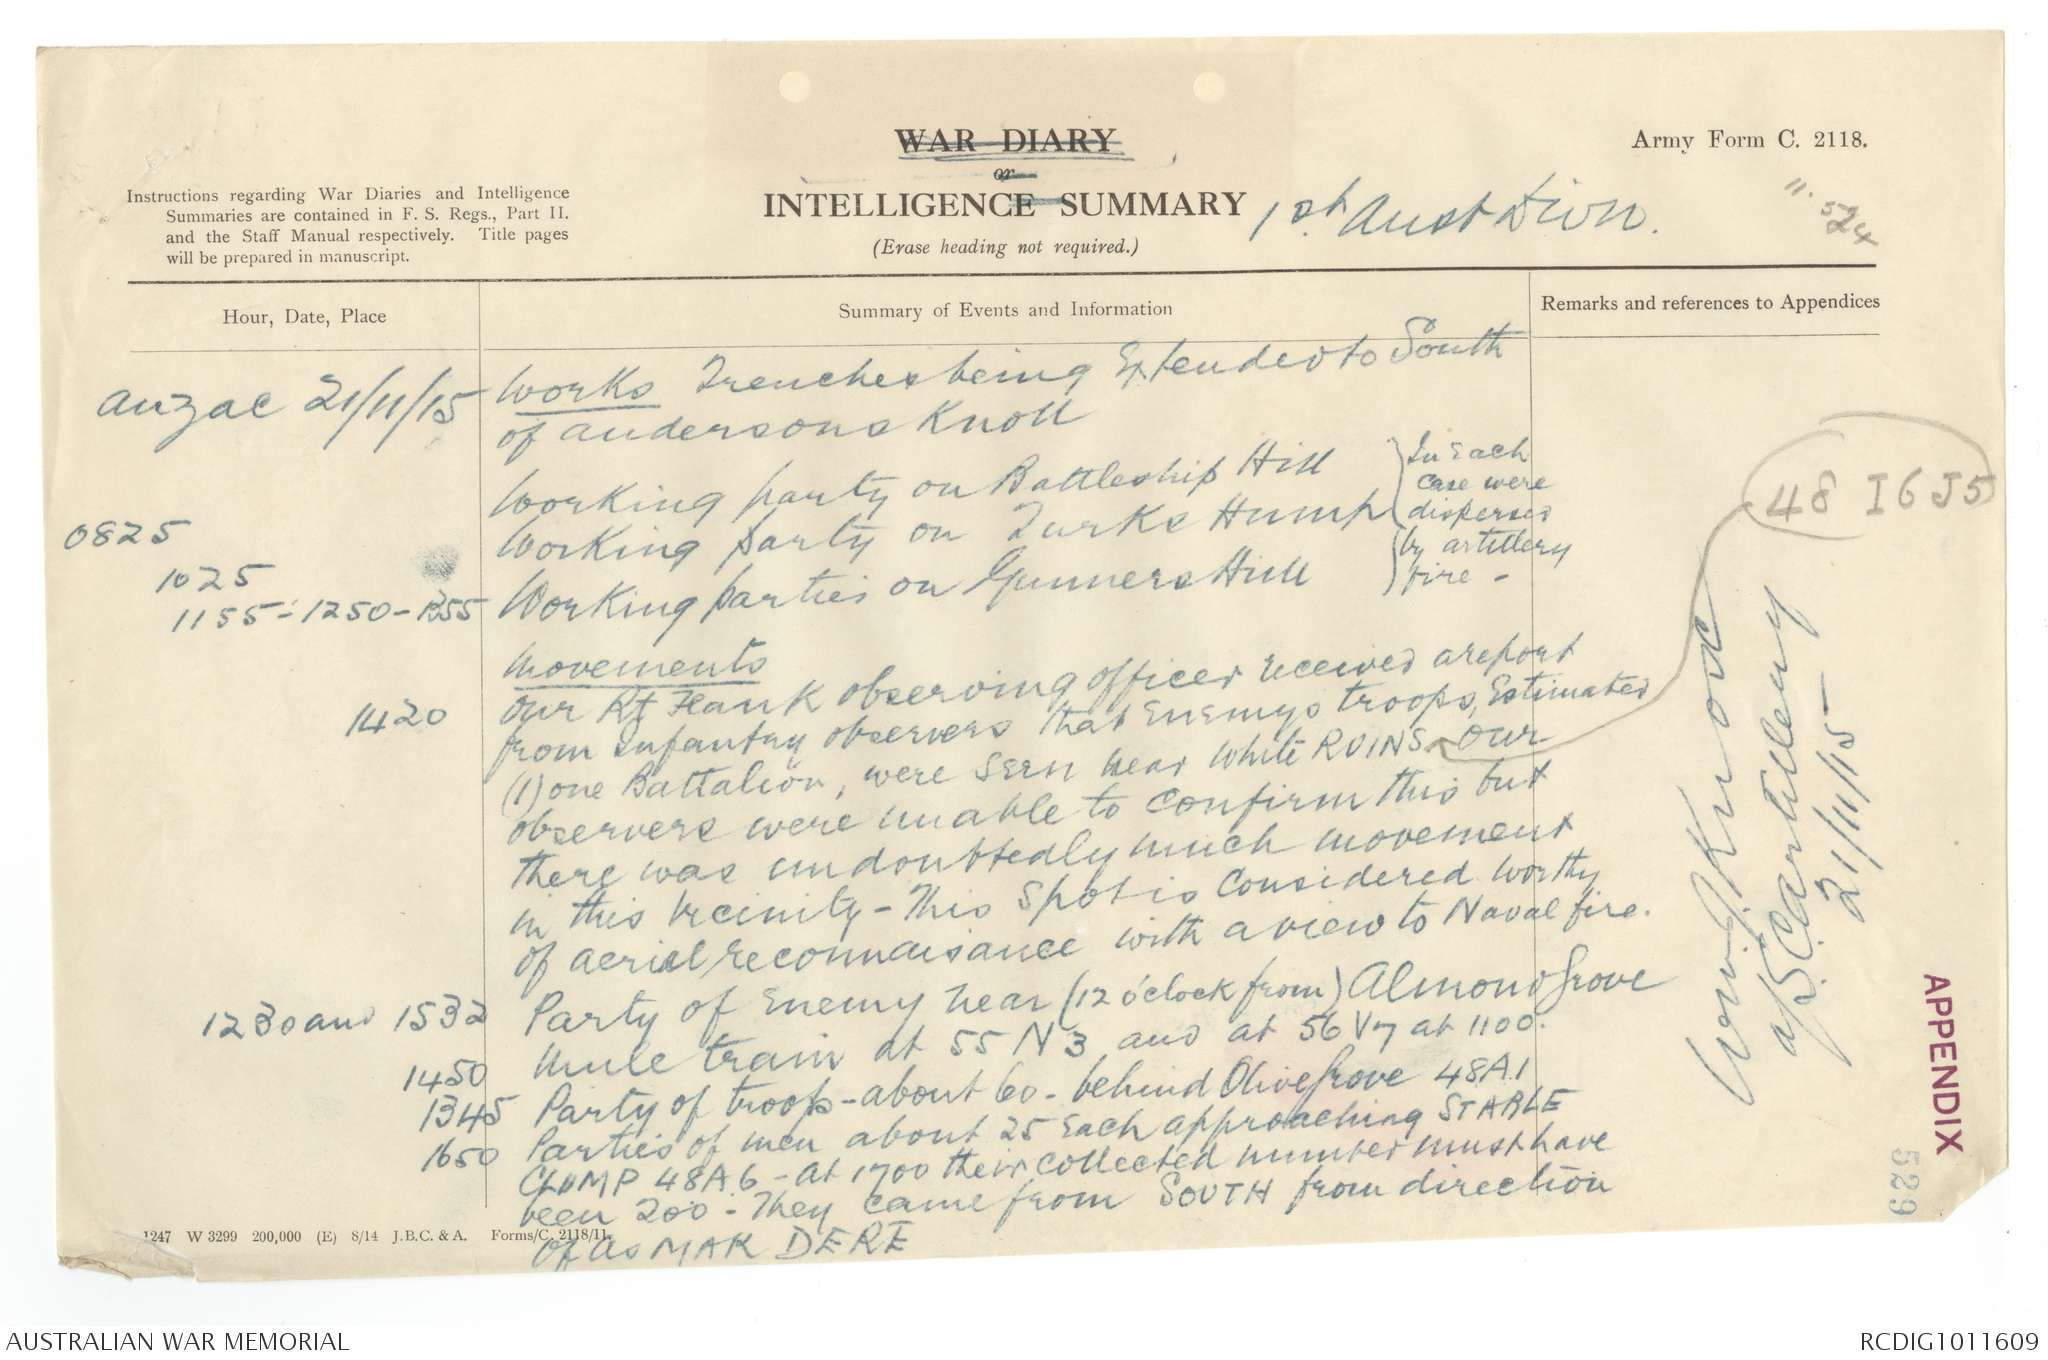 WAR DIARY
or
INTELLIGENCE SUMMARY
(Erase heading not required.)
1st. Aust Divn.
Army Form C. 2118.
11.
524
Instructions regarding War Diaries and Intelligence
Summaries are contained in F. S. Regs., Part II.
and the Staff Manual respectively. Title pages
will be prepared in manuscript.
Hour, Date, Place
Summary of Events and Information
Remarks and references to Appendices
Anzac 21/11/15
Works Trenches being Extended to South
of Andersons Knoll
0825 Working party on Battleship Hill
1025 Working party on Turks Hump
1155 - 1250 - 1355 Working parties on Gunners Hill
In Each
case were
dispersed
by artillery
fire -
Movements
1420 Our Rt Flank observing officer received a report
from Infantry observers that Enemys troops, Estimated
(1) one Battalion, were seen near White RUINS. Our
48 I6 J5
observers were unable to confirm this but
there was undoubtedly much movement
in this vicinity - This spot is considered worthy
of aerial reconnaisance with a view to Naval fire.
1230 and 1532 Party of Enemy near (12 o'clock from) Almond Grove
1450 Mule train at 55 N 3 and at 56 V7 at 1100.
1345 Party of troops - about 60 - behind Olive Grove 48A1
1650 Parties of men about 25 Each approaching STABLE
CLUMP 48A.6 - at 1700 their collected number must have
been 200 - They came from SOUTH from direction
of AsMAK DERE
Artillery
21/11/15
APPENDIX
529
1247 W 3299 200,000 (E) 8/14 J.B.C. & A. Forms/C. 2118/11.
AUSTRALIAN WAR MEMORIAL
RCDIG1011609